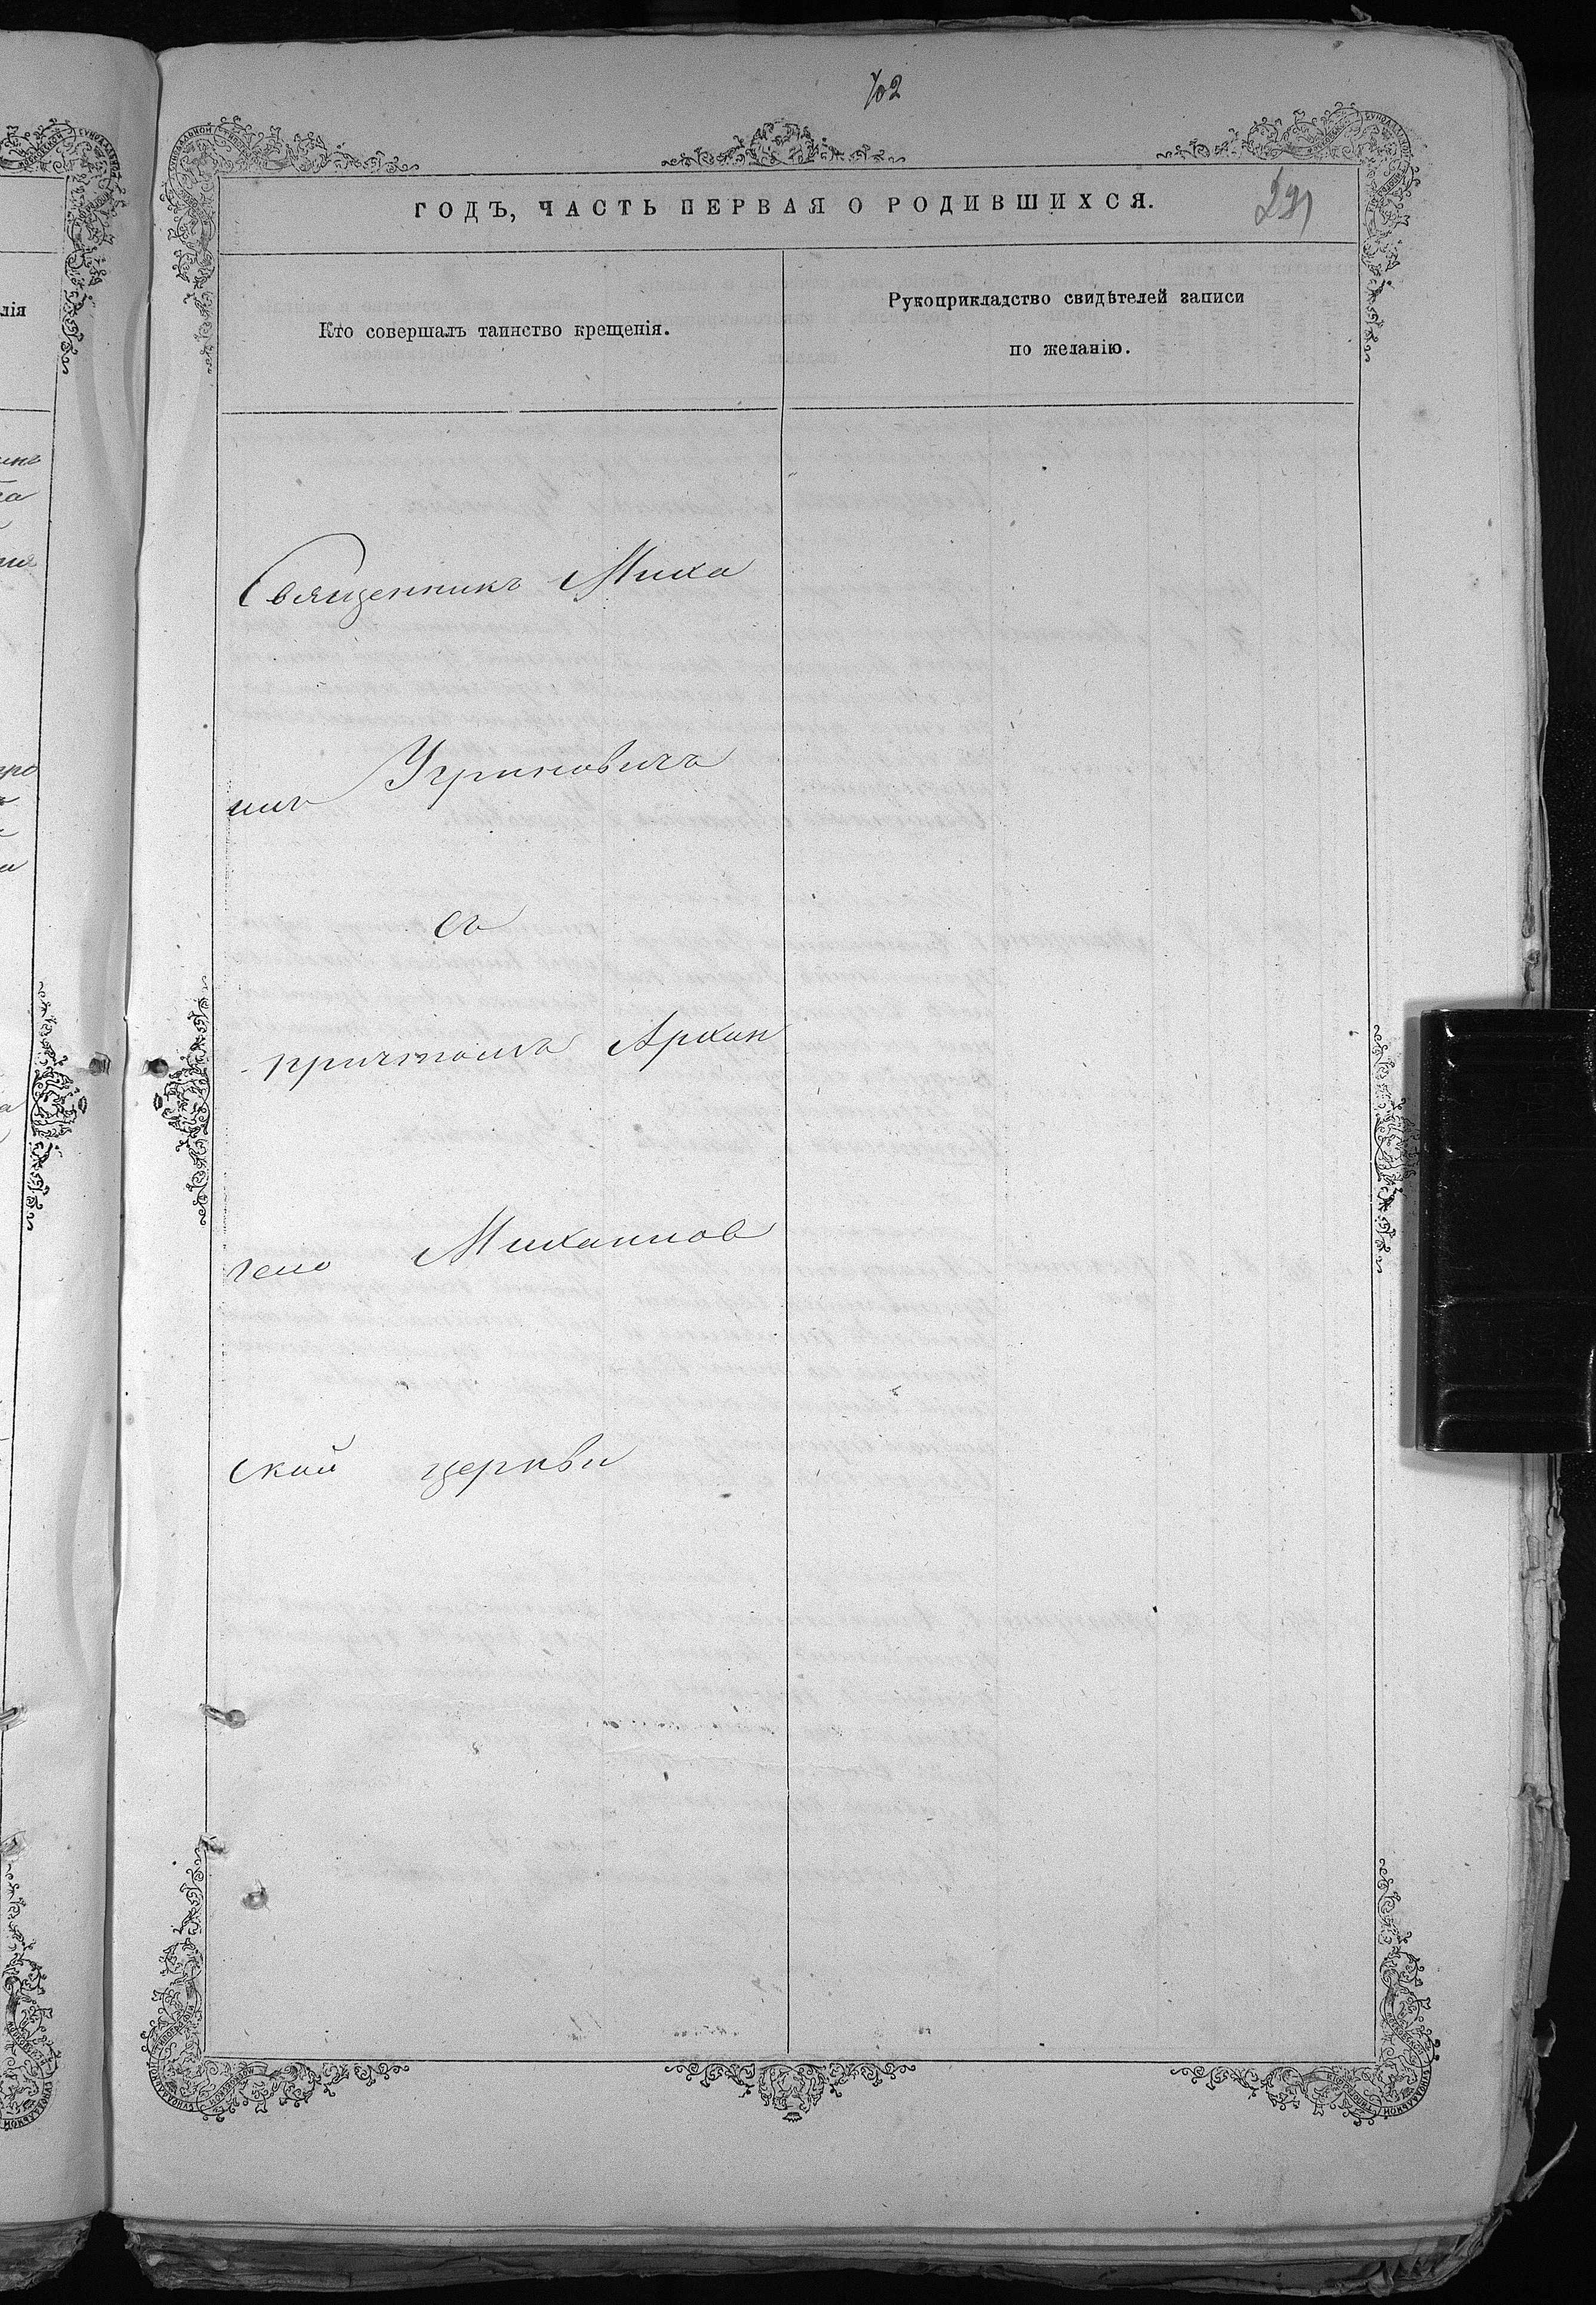 102
ГОДЪ, ЧАСТЬ ПЕРВАЯ О РОДИВШИХСЯ.
231
Кто совершалъ таинство крещенія.
Рукоприкладство свидѣтелей записи
по желанію.
Священникъ Миха
илъ Угриновичъ
съ
причтомъ Архан
гело Михаилов
ской церкви
лія